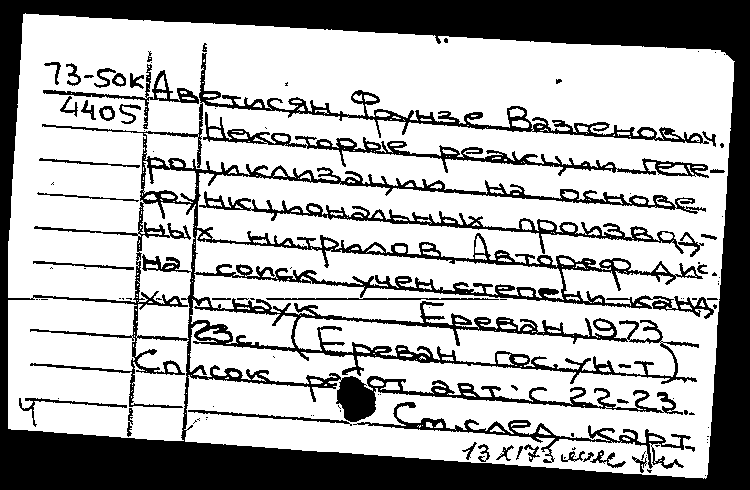 73-50к Аветисян, Фрунзе Вазгенович.
4405 Некоторые реакции гете-
роциклизации на основе
функциональных производ-
ных нитрилов. Автореф. дис.
на соиск. учен. степени канд.
хим. наук. Ереван, 1973
23с. (Ереван. гос. ун-т)
Список работ авт.: с 22-23.
Ч См. след. карт
13 X 173